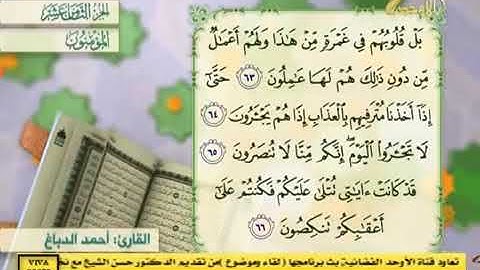 الأوحد
الجزء الثامن عشر
المؤمنون
بَلْ قُلُوبُهُمْ فِي غَمْرَةٍ مِّنْ هَٰذَا وَلَهُمْ أَعْمَٰلٌ
مِّن دُونِ ذَٰلِكَ هُمْ لَهَا عَٰمِلُونَ ٦٣ حَتَّىٰٓ
إِذَآ أَخَذْنَا مُتْرَفِيهِم بِٱلْعَذَابِ إِذَا هُمْ يَجْـَٔرُونَ ٦٤
لَا تَجْـَٔرُوا۟ ٱلْيَوْمَ ۖ إِنَّكُم مِّنَّا لَا تُنصَرُونَ ٦٥
قَدْ كَانَتْ ءَايَٰتِى تُتْلَىٰ عَلَيْكُمْ فَكُنتُمْ عَلَىٰٓ
أَعْقَٰبِكُمْ تَنكِصُونَ ٦٦
القارئ: أحمد الدباغ
VIVA
تعاود قناة الأوحد الفضائية بث برنامجها (لقاء وموضوع) من تقديم الدكتور حسن الشيخ مع نخ